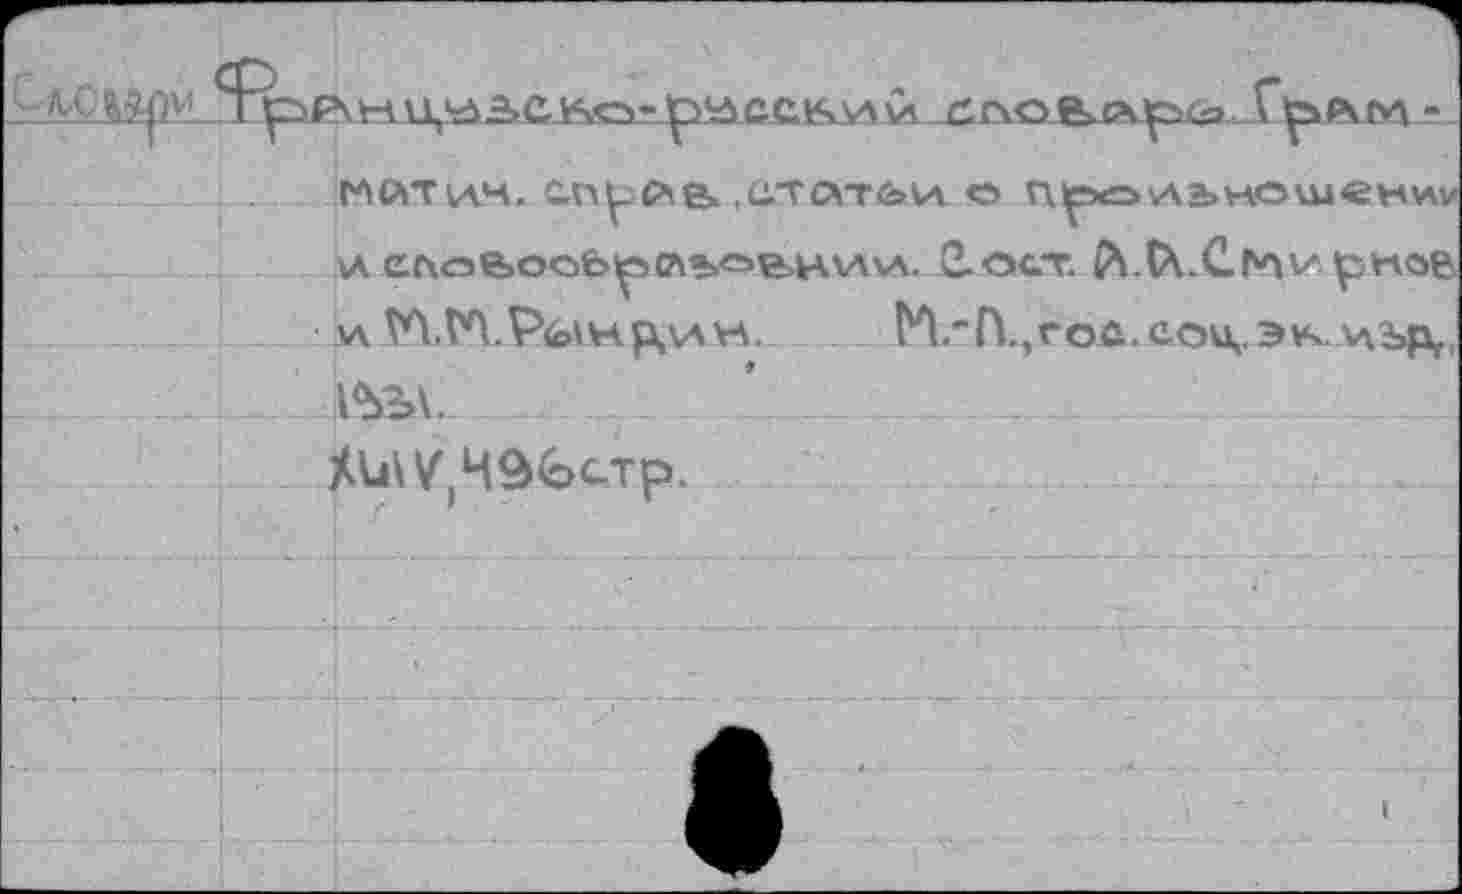 Словари Французско-русский словарь. Грам-
матич. справ., статьи о произношении
и словообразовнии. Сост. А.А.Смирнов
и М.М.Рындин. М.-Л., гос. соц. эк. изд.,
1931.
XLIV, 496 стр.